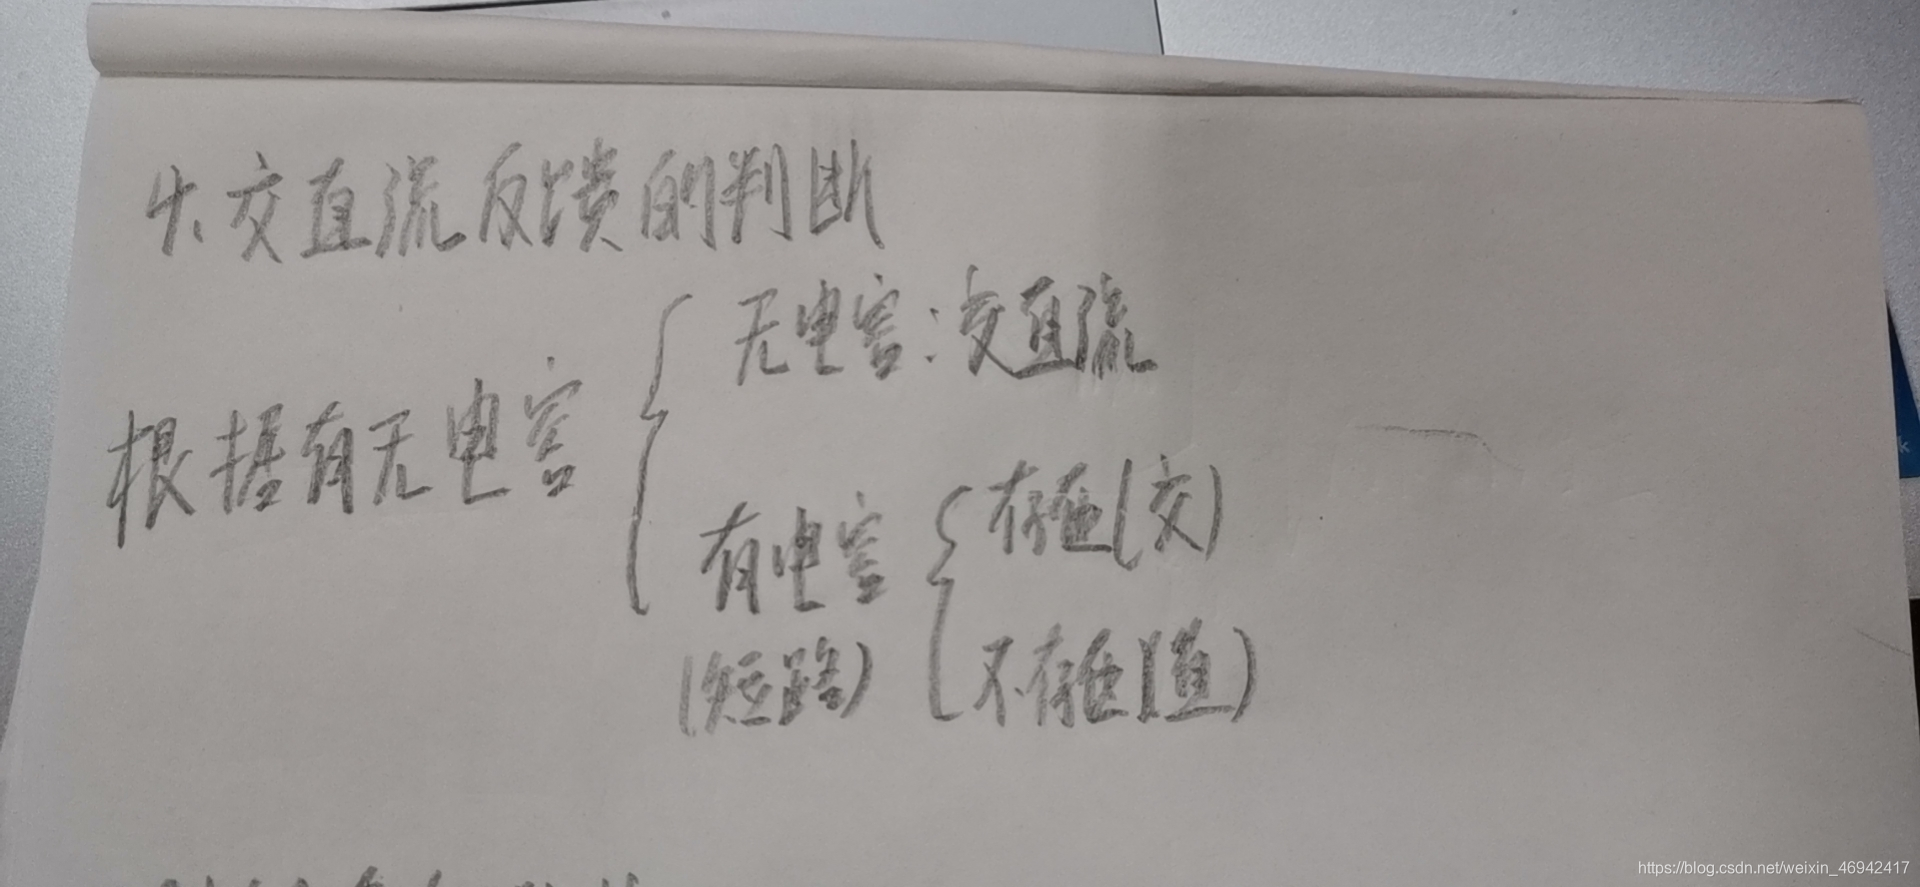 4、交直流反馈的判断
无电容:交直流
根据有无电容
存在(交)
有电容
(短路)
不存在(直)
https://blog.csdn.net/weixin_46942417